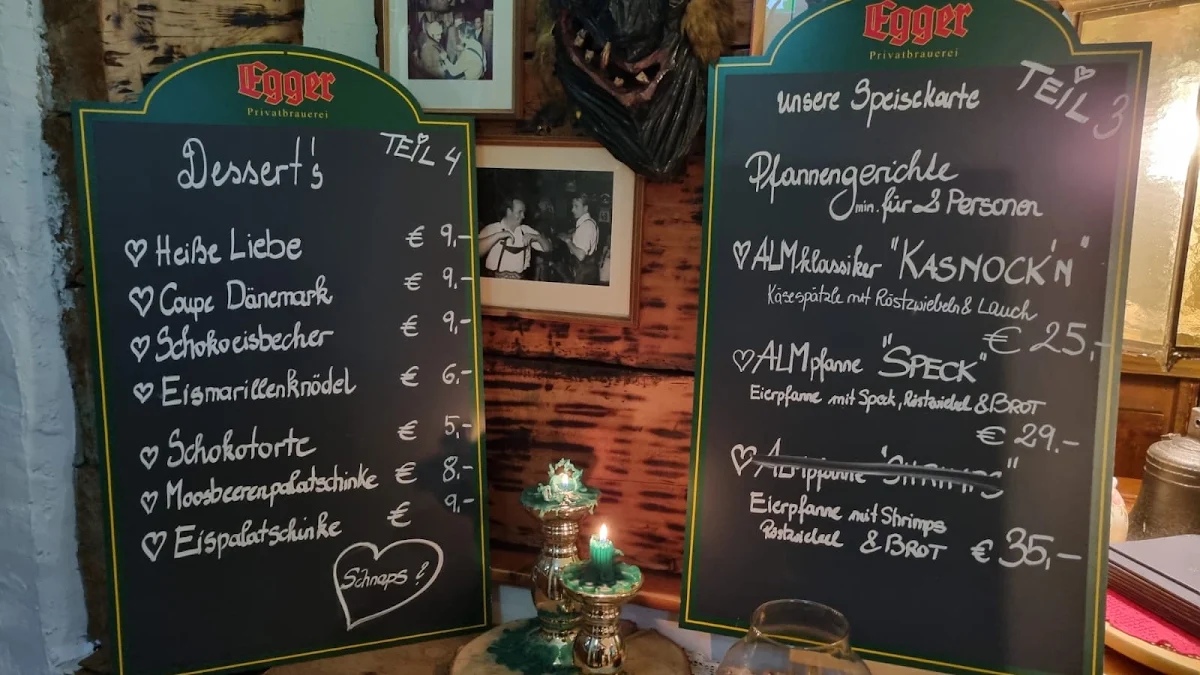 Egger
Privatbrauerei
Dessert's
TEIL 4
Heiße Liebe € 9,-
Coupe Dänemark € 9,-
Schokoeisbecher € 9,-
Eismarillenknödel € 6,-
Schokotorte € 5,-
Moosbeerenpalatschinke € 8,-
Eispalatschinke € 9,-
Schnaps ?
Egger
Privatbrauerei
unsere Speisekarte
TEIL 3
Pfannengerichte
min. für 2 Personen
ALMklassiker "KASNOCK'N"
Käsespätzle mit Röstzwiebeln & Lauch
€ 25,-
ALMpfanne "SPECK"
Eierpfanne mit Speck, Röstzwiebel & BROT
€ 29.-
ALMpfanne "SHRIMPS"
Eierpfanne mit Shrimps
Röstzwiebel & BROT € 35,-